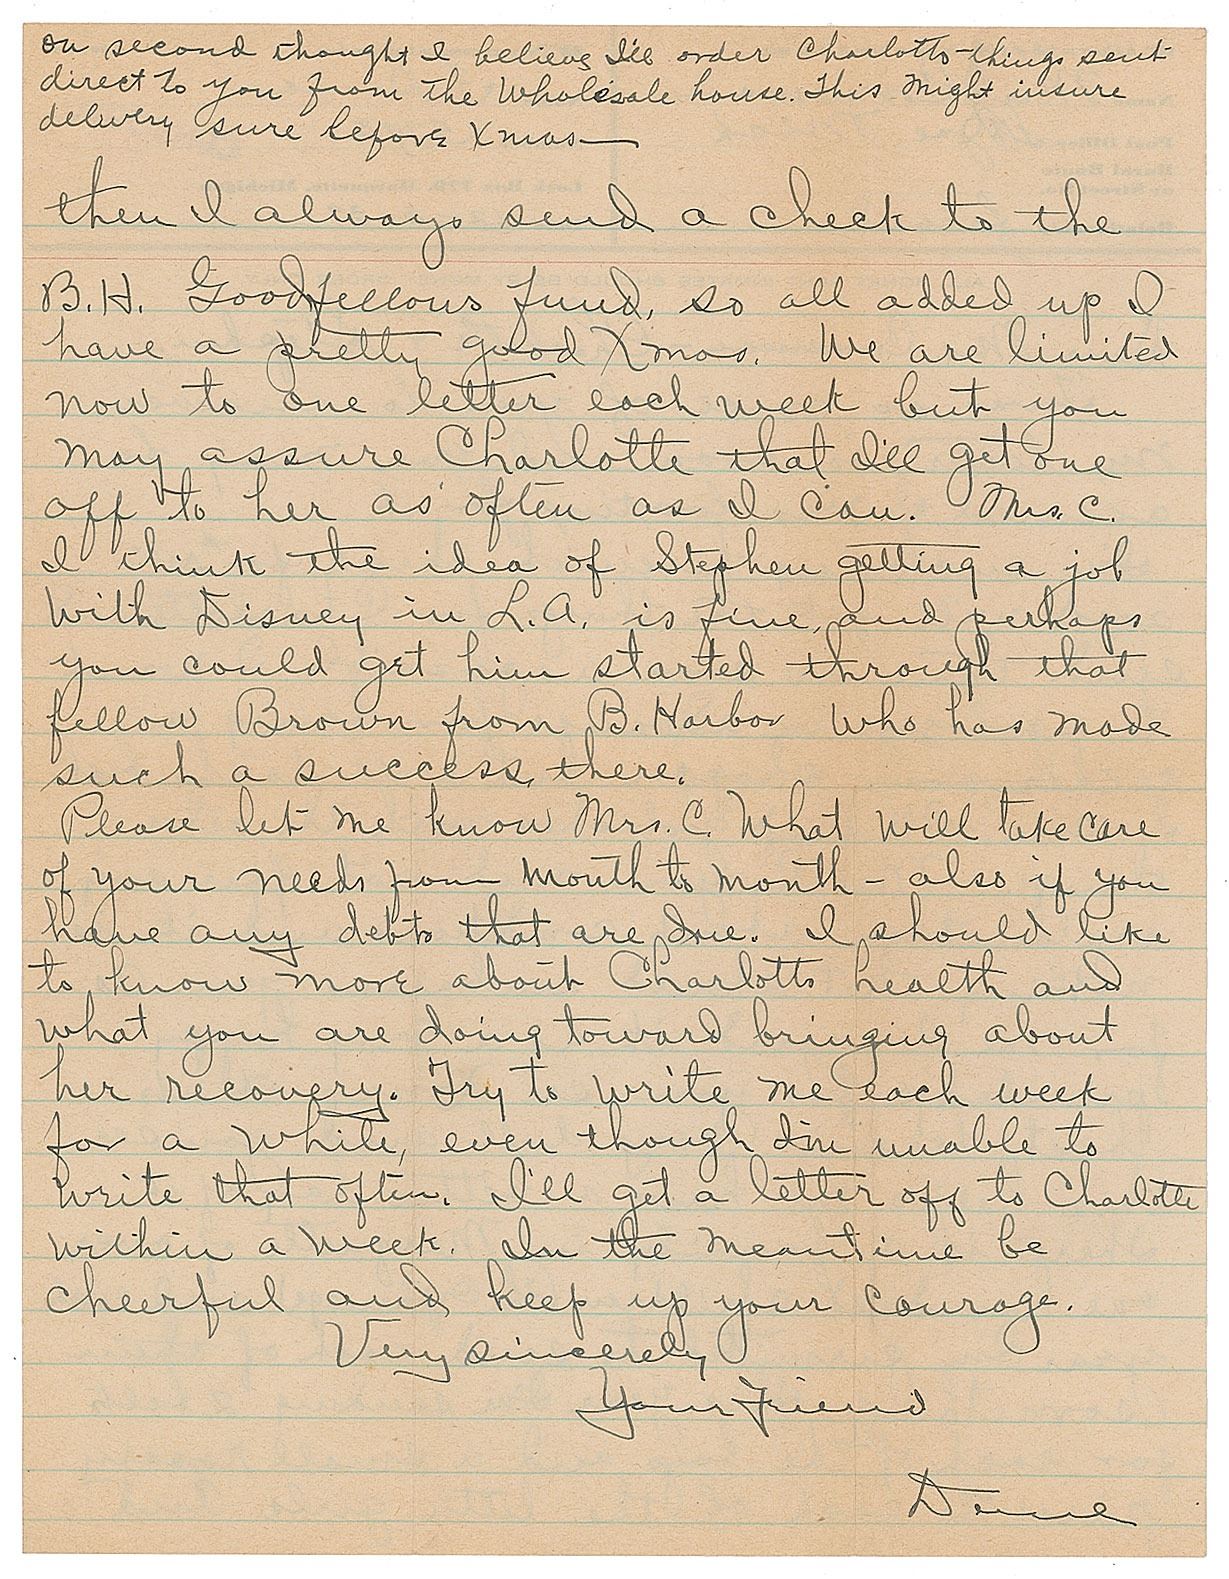 on second thought I believe I'll order Charlotts things sent
direct to you from the Wholesale house. This might insure
delivery sure before Xmas—
then I always send a check to the
B.H. Goodfellows fund, so all added up I
have a pretty good Xmas. We are limited
now to one letter each week but you
may assure Charlotte that I'll get one
off to her as often as I can. Mrs. C.
I think the idea of Stephen getting a job
With Disney in L.A. is fine, and perhaps
you could get him started through that
fellow Brown from B. Harbor who has made
such a success there.
Please let me know Mrs. C. What will take care
of your needs from month to month - also if you
have any debts that are due. I should like
to know more about Charlotts health and
what you are doing toward bringing about
her recovery. Try to write me each week
for a while, even though I'm unable to
write that often. I'll get a letter off to Charlotte
within a week. In the meantime be
cheerful and keep up your courage.
Very sincerely
Your Friend